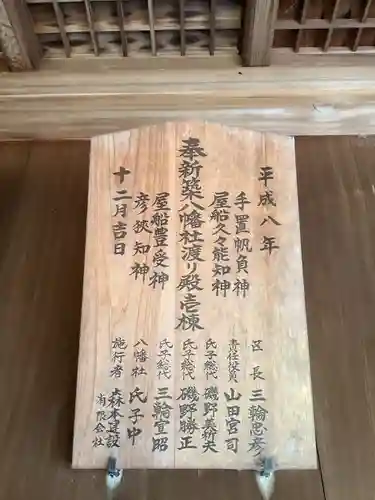 平成八年
手置帆負神
屋船久々能知神
奉新築八幡社渡リ殿壱棟
屋船豊受神
彦狭知神
十二月吉日
区長 三輪忠彦
責任役員 山田宮司
氏子総代 磯野美析夫
氏子総代 磯野勝正
氏子総代 三輪宣昭
八幡社 氏子中
施行者 森本建設
有限会社